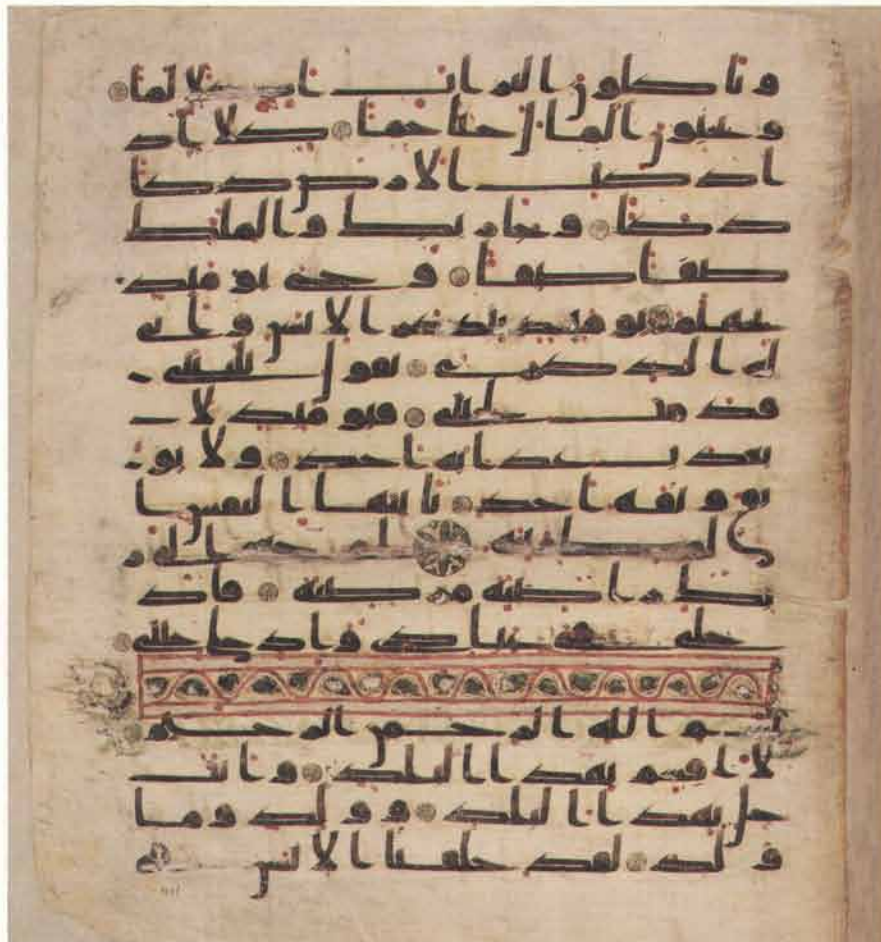 وتاكلون التراث اكلا لما
وتحبون المال حبا جما كلا اذ
ا دكت الارض دكا
دكا وجا ربك والملك
صفا صفا وجىء يومئذ
بجهنم يومئذ يتذكر الانسن وانى
له الذكرى يقول يليتنى
قدمت لحياتى فيومئذ لا
يعذب عذابه احد ولا يو
ثق وثاقه احد يايتها النفس ا
لمطمئنة ارجعى الى ر
بك راضية مرضية فاد
خلى فى عبادى وادخلى جنتى
بسم الله الرحمن الرحيم
لا اقسم بهذا البلد وانت
حل بهذا البلد ووالد وما
ولد لقد خلقنا الانسن فى